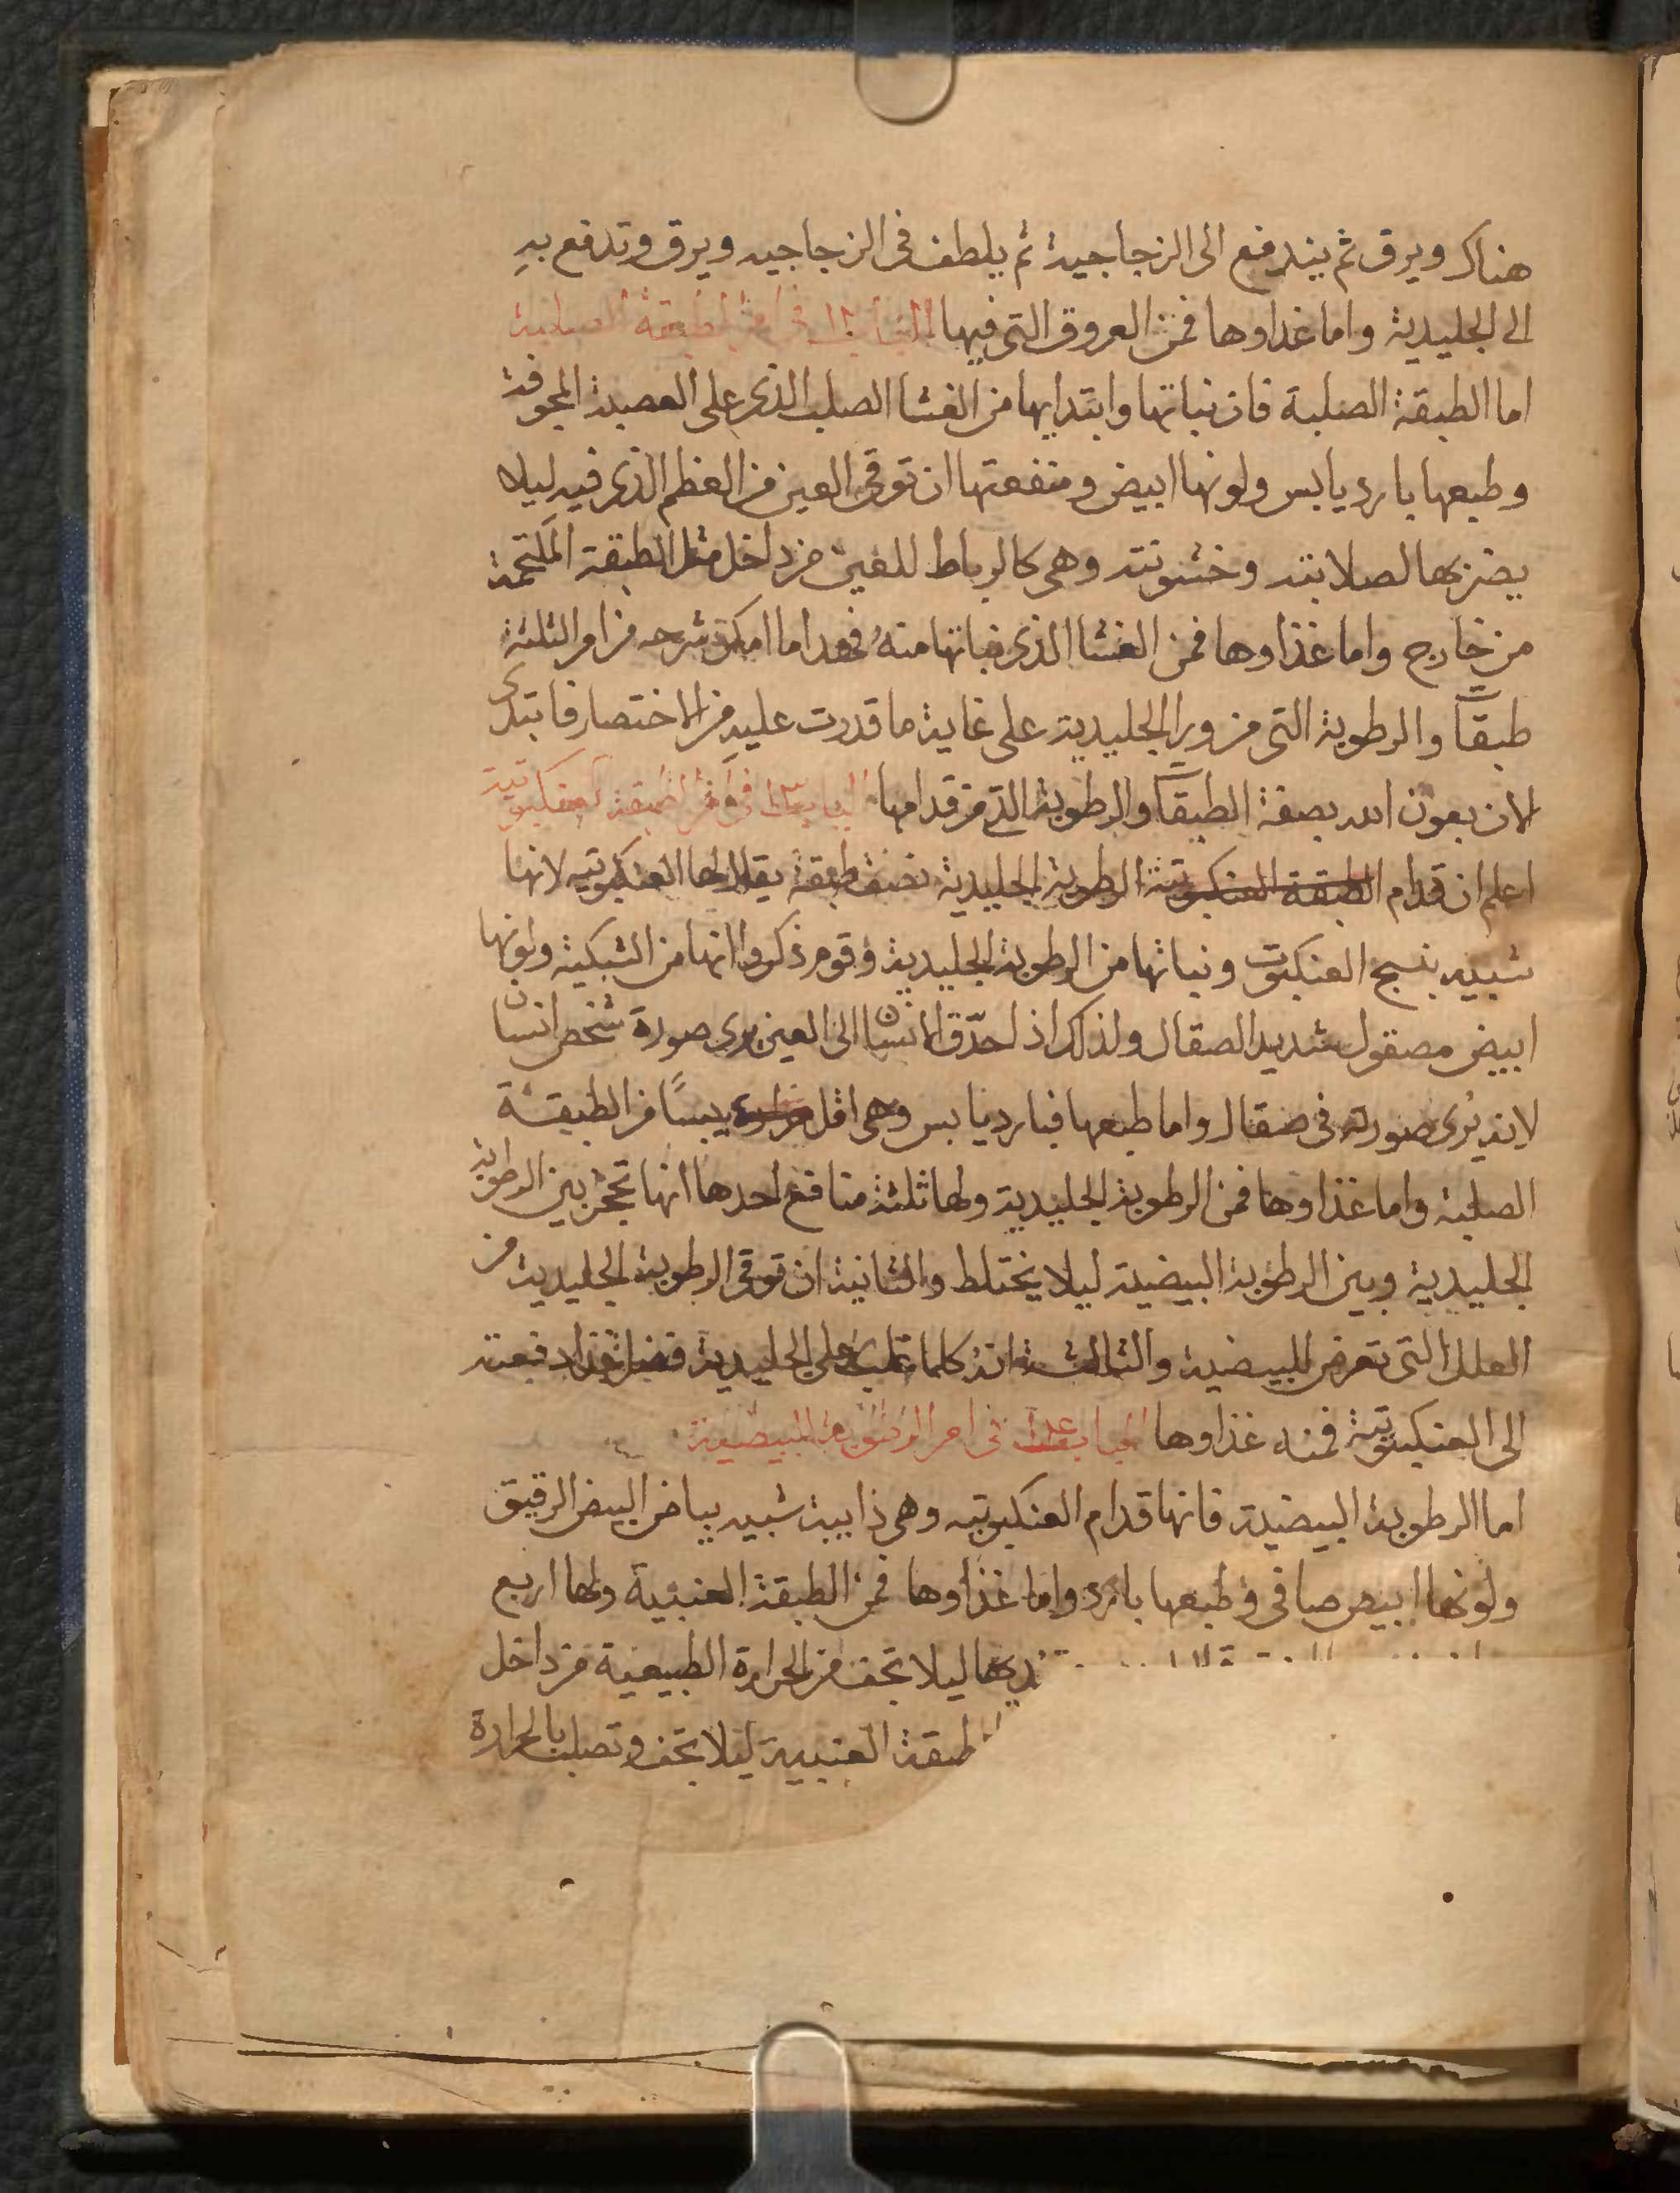 هناك ويرق ثم يندفع الى الزجاجية ثم يلطف فى الزجاجيه ويرق وتدفع به
الى الجليدية واما غداوها فمن العروق التى فيها الباب ١٢ فى امر الطبقة الصلبة
اما الطبقة الصلبة فان نباتها وابتدايها من الغشا الصلب الذى على العصبة المجوفة
وطبعها بارد يابس ولونها ابيض ومنفعتها ان توقى العين من العظم الذى فيه ليلا
يضربها لصلابته وخشونته وهى كالرباط للعين من داخل مثل الطبقة الملتحمة
من خارج واما غذاوها فمن الغشا الذى نباتها منه فهدا ما امكن شرحه من امر الثلثة
طبقات والرطوبة التى من ورا الجليدية على غاية ما قدرت عليه من الاختصار فابتدى
الان بعون الله بصفة الطبقات والرطوبة التى من قدامها الباب ١٣ فى امر الطبقة العنكبوتية
اعلم ان قدام الطبقة العنكبوتية الرطوبة الجليدية نصف طبقة يقال لها العنكبوتيه لانها
شبيه بنسج العنكبوت ونباتها من الرطوبة الجليدية وقوم ذكروا انها من الشبكية ولونها
ابيض مصقول شديد الصقال ولذلك اذا حدّق الانسان الى العين يرى صورة شخص انسان
لانه يُرى صورته فى صقال واما طبعها فبارد يابس وهى اقل يبسًا من الطبيقة
الصلبة واما غذاوها فمن الرطوبة الجليدية ولها ثلثة منافع احدها انها تحجز بين الرطوبة
الجليدية وبين الرطوبة البيضية ليلا يختلط والثانية ان توقى الرطوبة الجليدية من
العلل التى تعرض للبيضية والثالثة انه كلما على الجليدية فضل غذا دفعته
الى العنكبوتية فمنه غذاوها الباب فى امر الرطوبة البيضية
اما الرطوبة البيضية فانها قدام العنكبوتيه وهى ذايبة شبيه ببياض البيض الرقيق
ولونها ابيض صافى وطبعها بارد واما غذاوها فمن الطبقة العنبية ولها اربع
ليلا تجف من الحرارة الطبيعية من داخل
طبقة العنبية ليلا تجف وتصلب بالحرارة